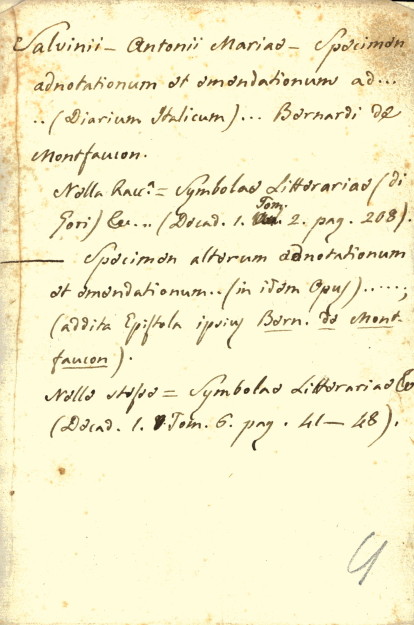 Salvinii - Antonii Mariae - Specimen
adnotationum et emendationum ad...
.. (Diarium Italicum)... Bernardi de
Montfaucon.
Nella Racc.ª = Symbolae Litterariae (di
Gori) &c... (Decad. 1. Tom. 2. pag. 208).
— Specimen alterum adnotationum
et emendationum.. (in idem Opus).....;
(addita Epistola ipsius Bern. de Mont-
faucon).
Nelle stesse = Symbolae Litterariae &c
(Decad. 1. Tom. 6. pag. 41 — 48).